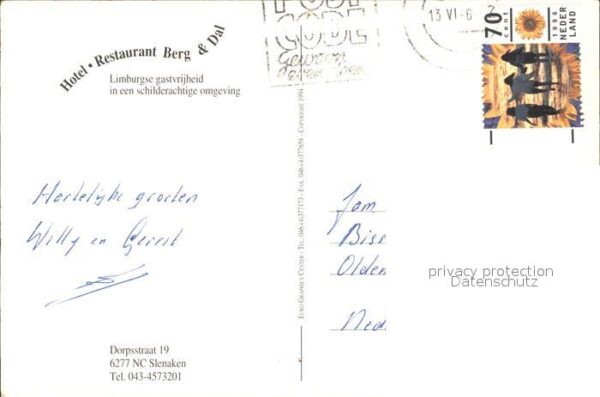 Hotel • Restaurant Berg & Dal
Limburgse gastvrijheid
in een schilderachtige omgeving
POST
CODE
Gewoon
even doen
13 VI - 6
70
cent
1994
NEDER
LAND
Hartelijke groeten
Willy en Gerrit
EURO GRAPHICS CENTER - TEL. 046-(4)377173 - FAX. 046-(4)377658 - COPYRIGHT 1994
Fam
Biss
Olden
Ned
privacy protection
Datenschutz
Dorpsstraat 19
6277 NC Slenaken
Tel. 043-4573201